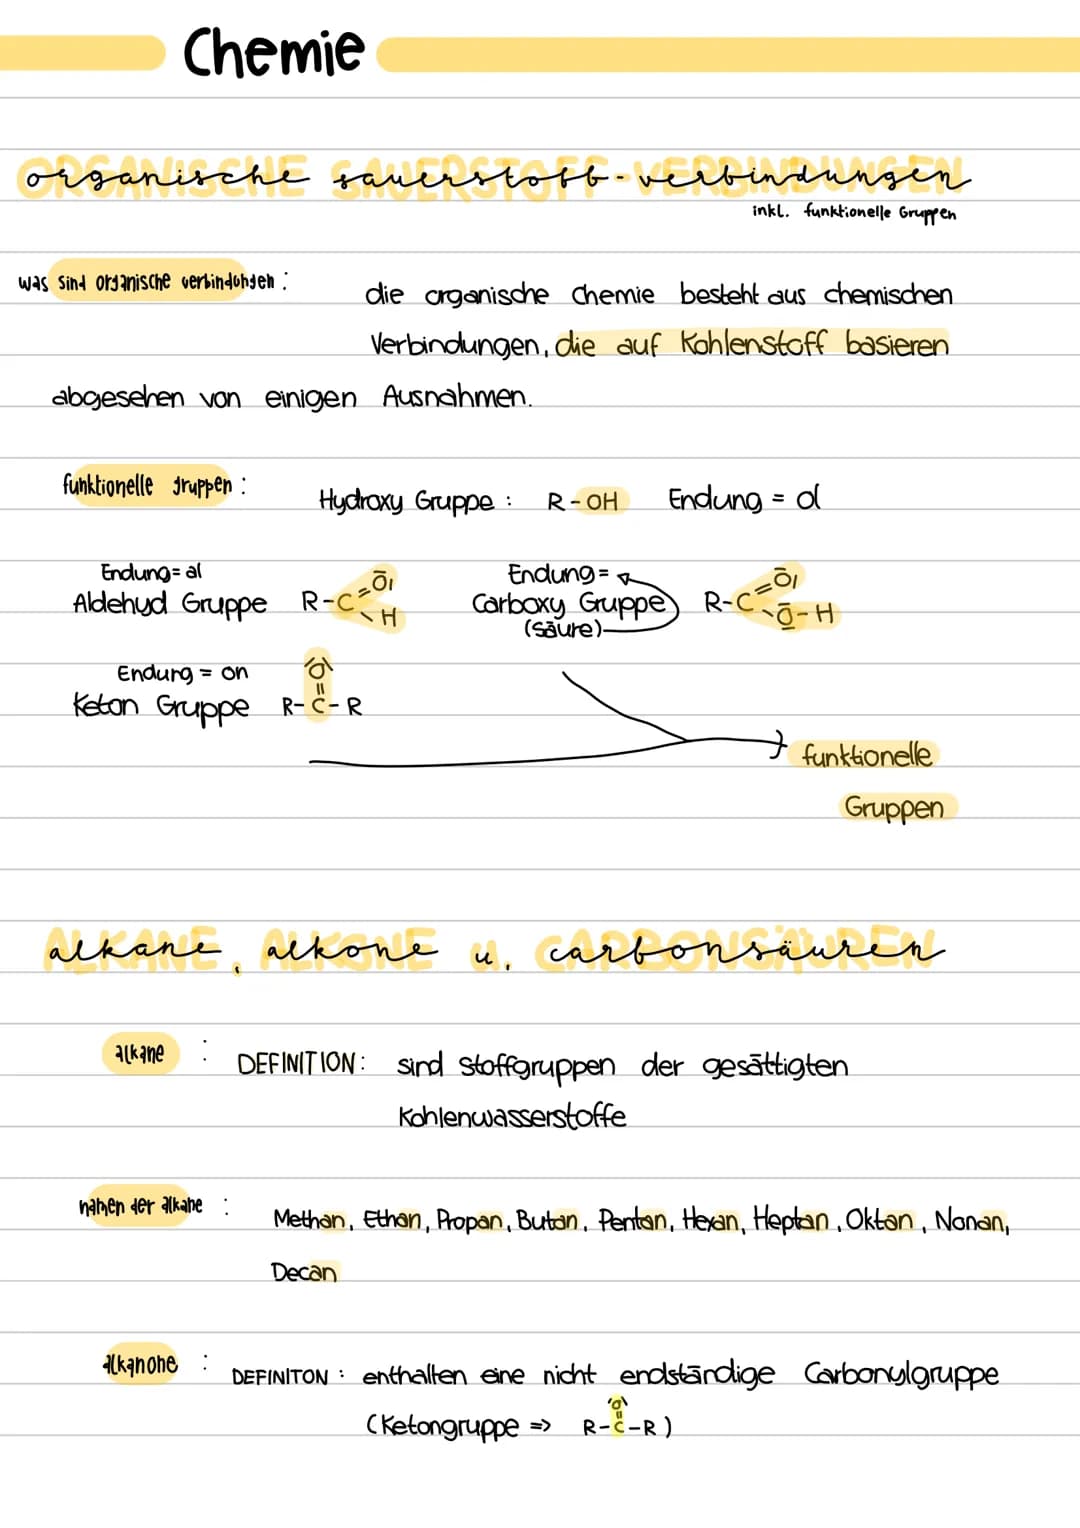 Chemie
organische sauerstoff-verbindungen
inkl. funktionelle Gruppen
was sind organische verbindungen :
die organische Chemie besteht aus chemischen
Verbindungen, die auf Kohlenstoff basieren
abgesehen von einigen Ausnahmen.
funktionelle gruppen :
Hydroxy Gruppe : R-OH Endung = ol
Endung= al
Aldehyd Gruppe R-C=O H
Endung=
Carboxy Gruppe R-C=O O-H
(säure)
Endung = on
Keton Gruppe O
R-C-R
funktionelle
Gruppen
alkane, alkone u. carbonsäuren
alkane :
DEFINITION: sind Stoffgruppen der gesättigten
Kohlenwasserstoffe
namen der alkane :
Methan, Ethan, Propan, Butan, Pentan, Hexan, Heptan, Oktan, Nonan,
Decan
alkanone :
DEFINITON : enthalten eine nicht endständige Carbonylgruppe
O
(Ketongruppe => R-C-R)